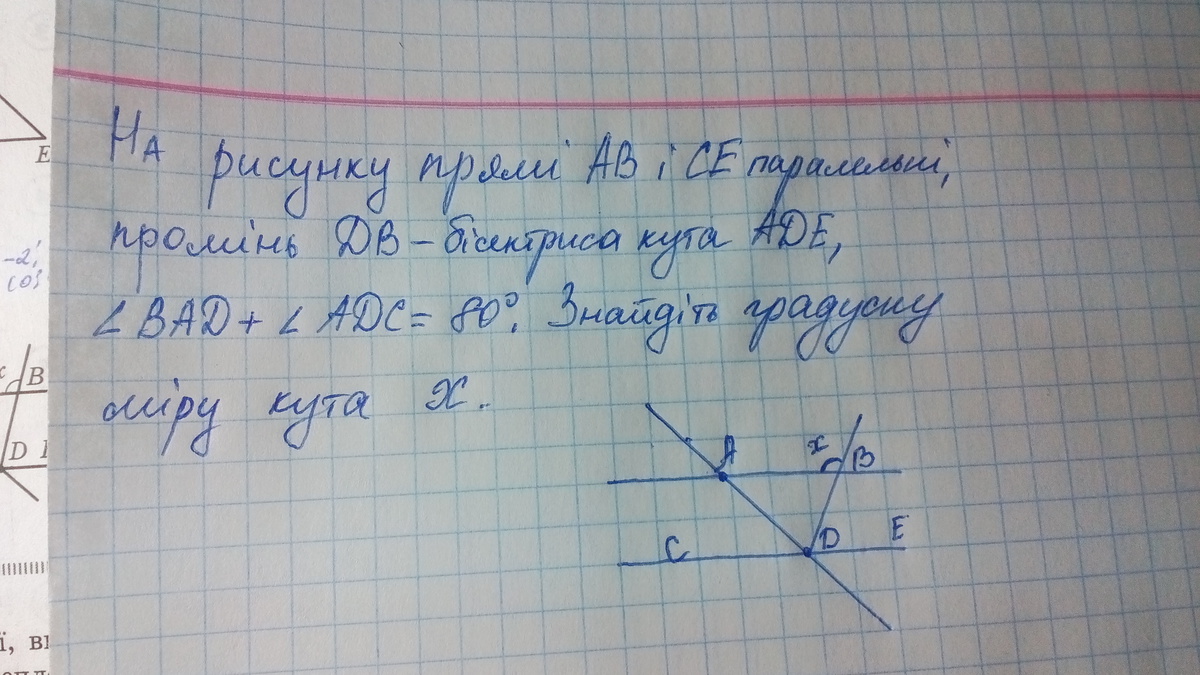 На рисунку прямі AB і CE паралельні,
промінь DB – бісектриса кута ADE,
∠ BAD + ∠ ADC = 80°. Знайдіть градусну
міру кута x.
A
x
B
C
D
E
E
-2;
B
D
ї, ві